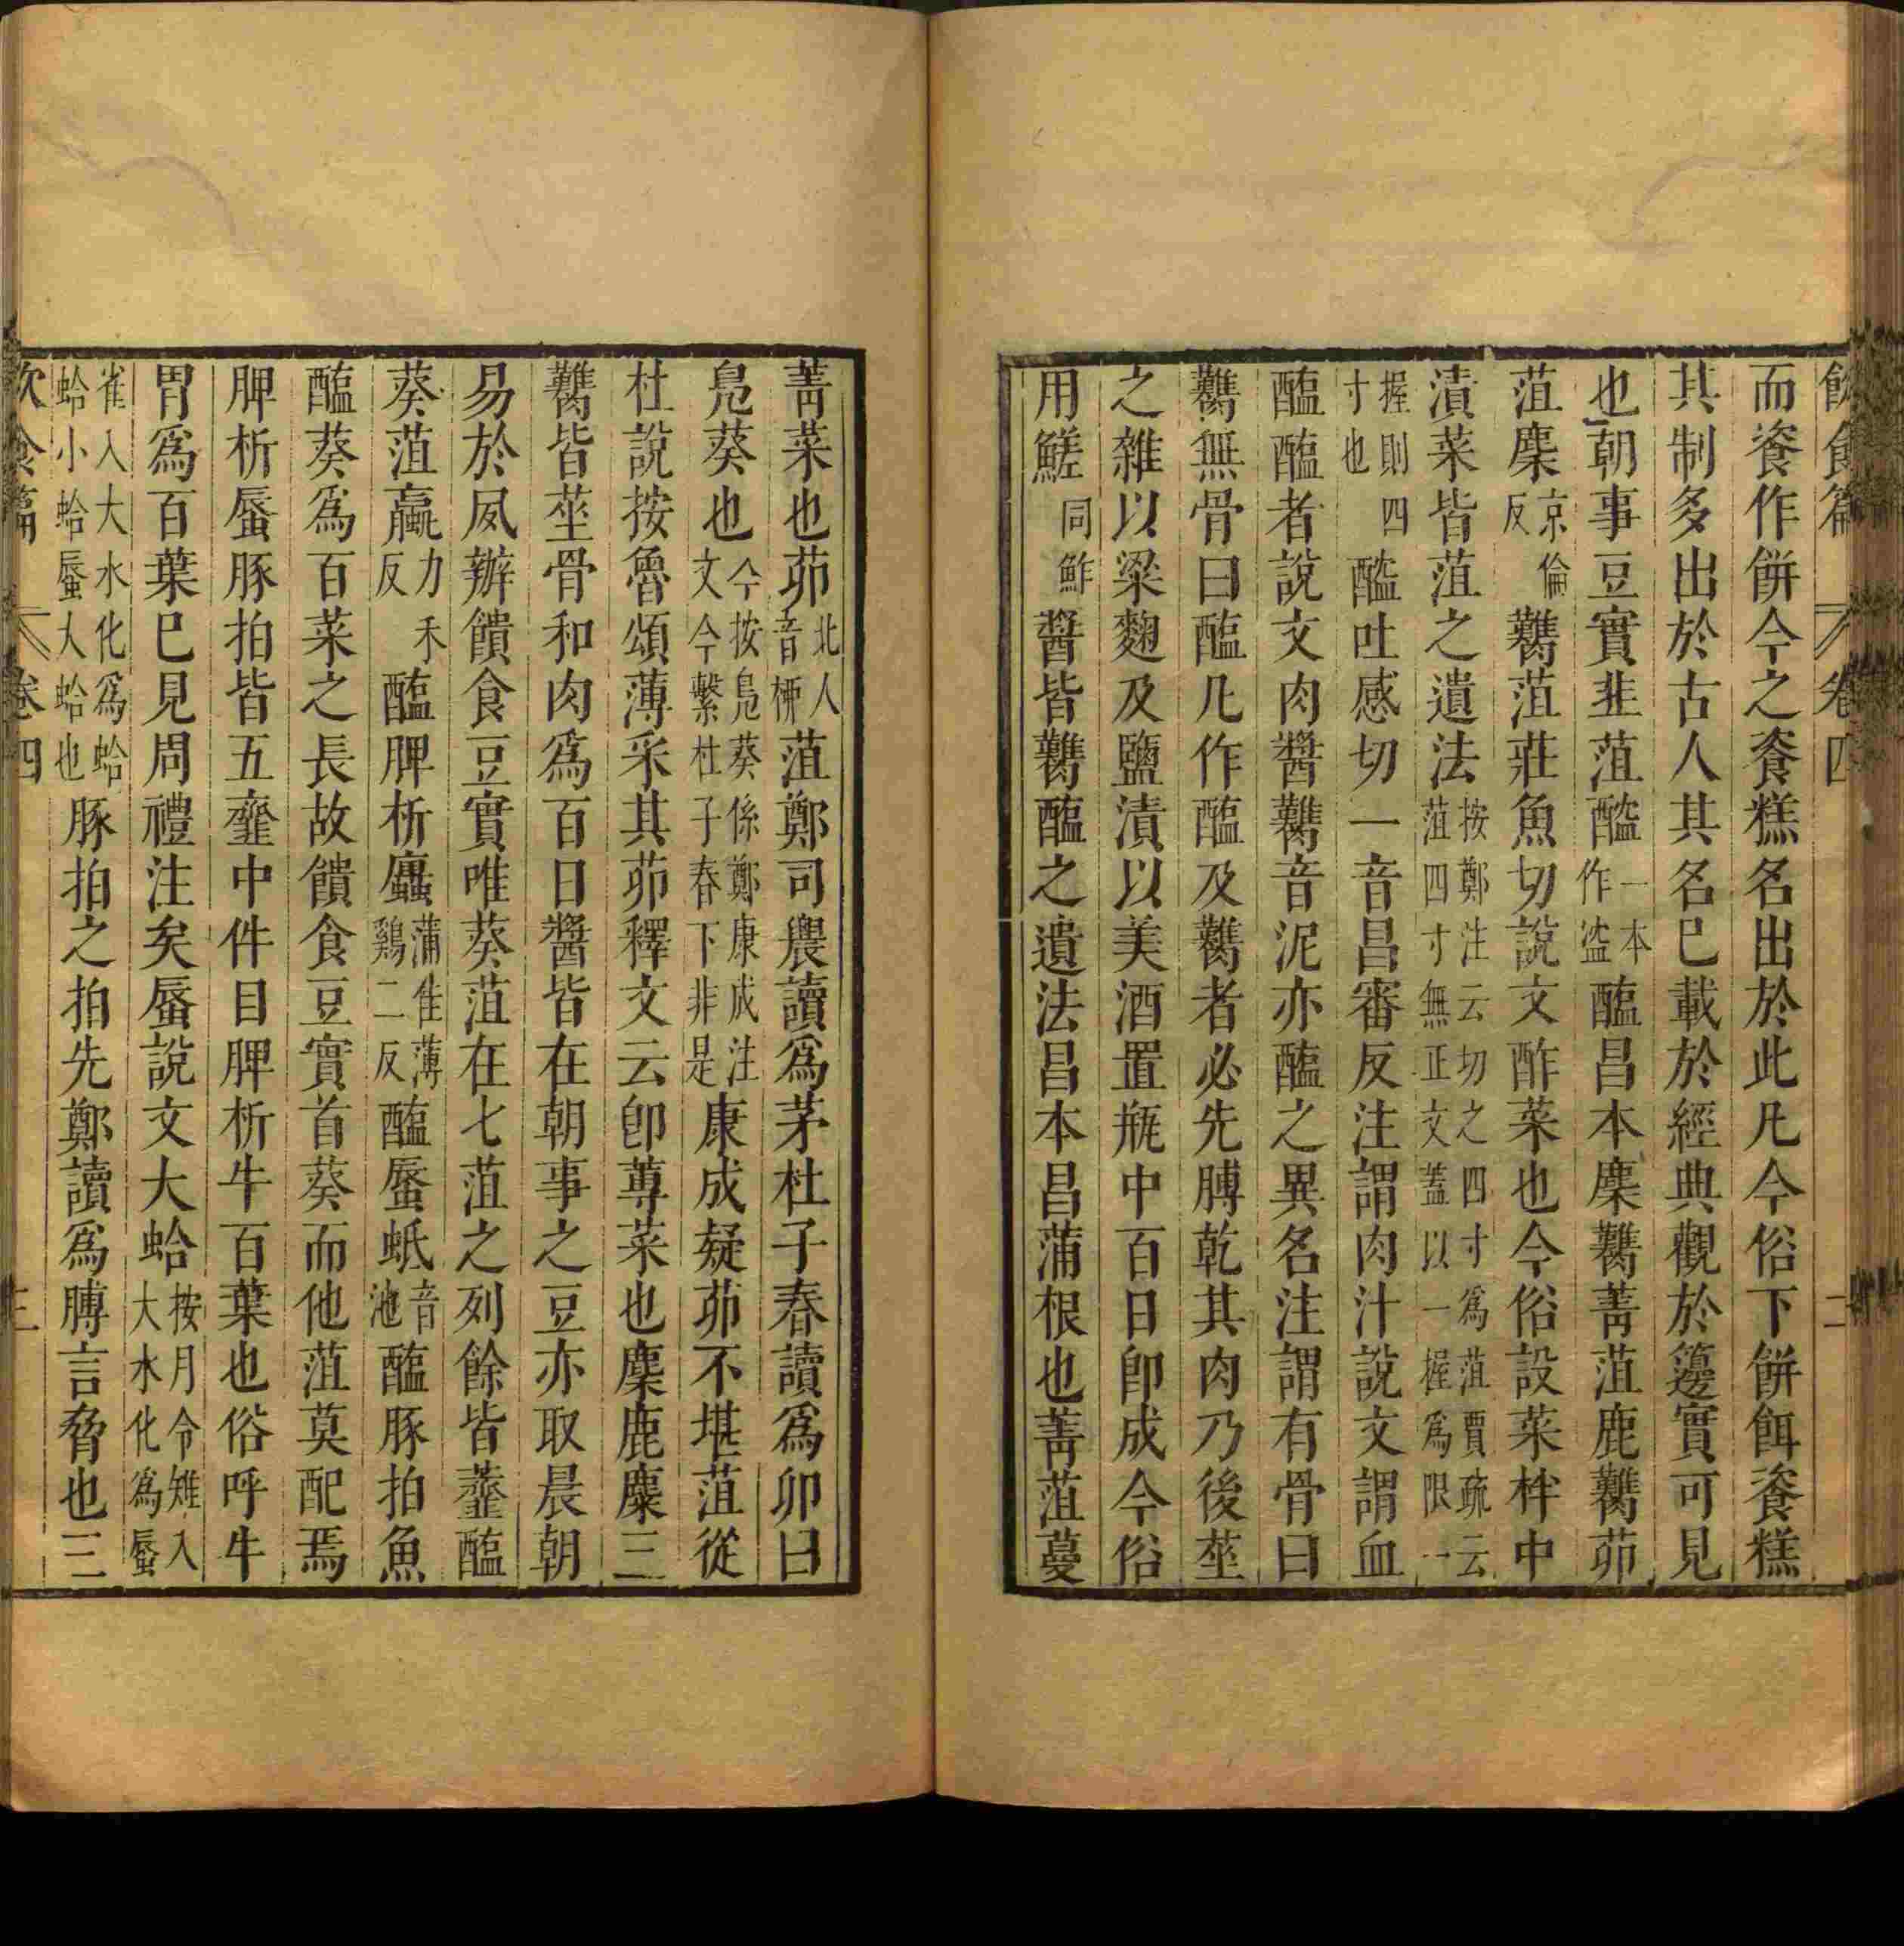 飲食篇 卷四 二
而餈作餅今之餈糕名出於此凡今俗下餅餌餈糕
其制多出於古人其名已載於經典觀於籩實可見
也朝事豆實韭菹醓一本作盗醢昌本麋臡菁菹鹿臡茆
菹麋京倫反臡菹莊魚切說文酢菜也今俗設菜柈中
漬菜皆菹之遺法按鄭注云切之四寸為菹賈疏云菹四寸無正文蓋以一握為限一
握則四寸也醓吐感切一音昌審反注謂肉汁說文謂血
醢醢者說文肉醬臡音泥亦醢之異名注謂有骨曰
臡無骨曰醢凡作醢及臡者必先膊乾其肉乃後莝
之雜以粱麴及鹽漬以美酒置瓶中百日卽成今俗
用鹺同鮓醬皆臡醢之遺法昌本昌蒲根也菁菹蔓
菁菜也茆北人音桺菹鄭司農讀爲茅杜子春讀爲卯曰
鳧葵也今按鳧葵係鄭康成注文今繫杜子春下非是康成疑茆不堪菹從
杜說按魯頌薄采其茆釋文云卽蓴菜也麋鹿麋三
臡皆莝骨和肉爲百日醬皆在朝事之豆亦取晨朝
易於夙辦饋食豆實唯葵菹在七菹之列餘皆虀醢
葵菹蠃力禾反醢脾析蠯蒲隹薄雞二反醢蜃蚳音池醢豚拍魚
醢葵爲百菜之長故饋食豆實首葵而他菹莫配焉
脾析蜃豚拍皆五虀中件目脾析牛百葉也俗呼牛
胃爲百葉已見周禮注矣蜃說文大蛤按月令雉入大水化爲蜃
雀入大水化爲蛤蛤小蛤蜃大蛤也豚拍之拍先鄭讀爲膊言脅也三
飲食篇 卷四 三